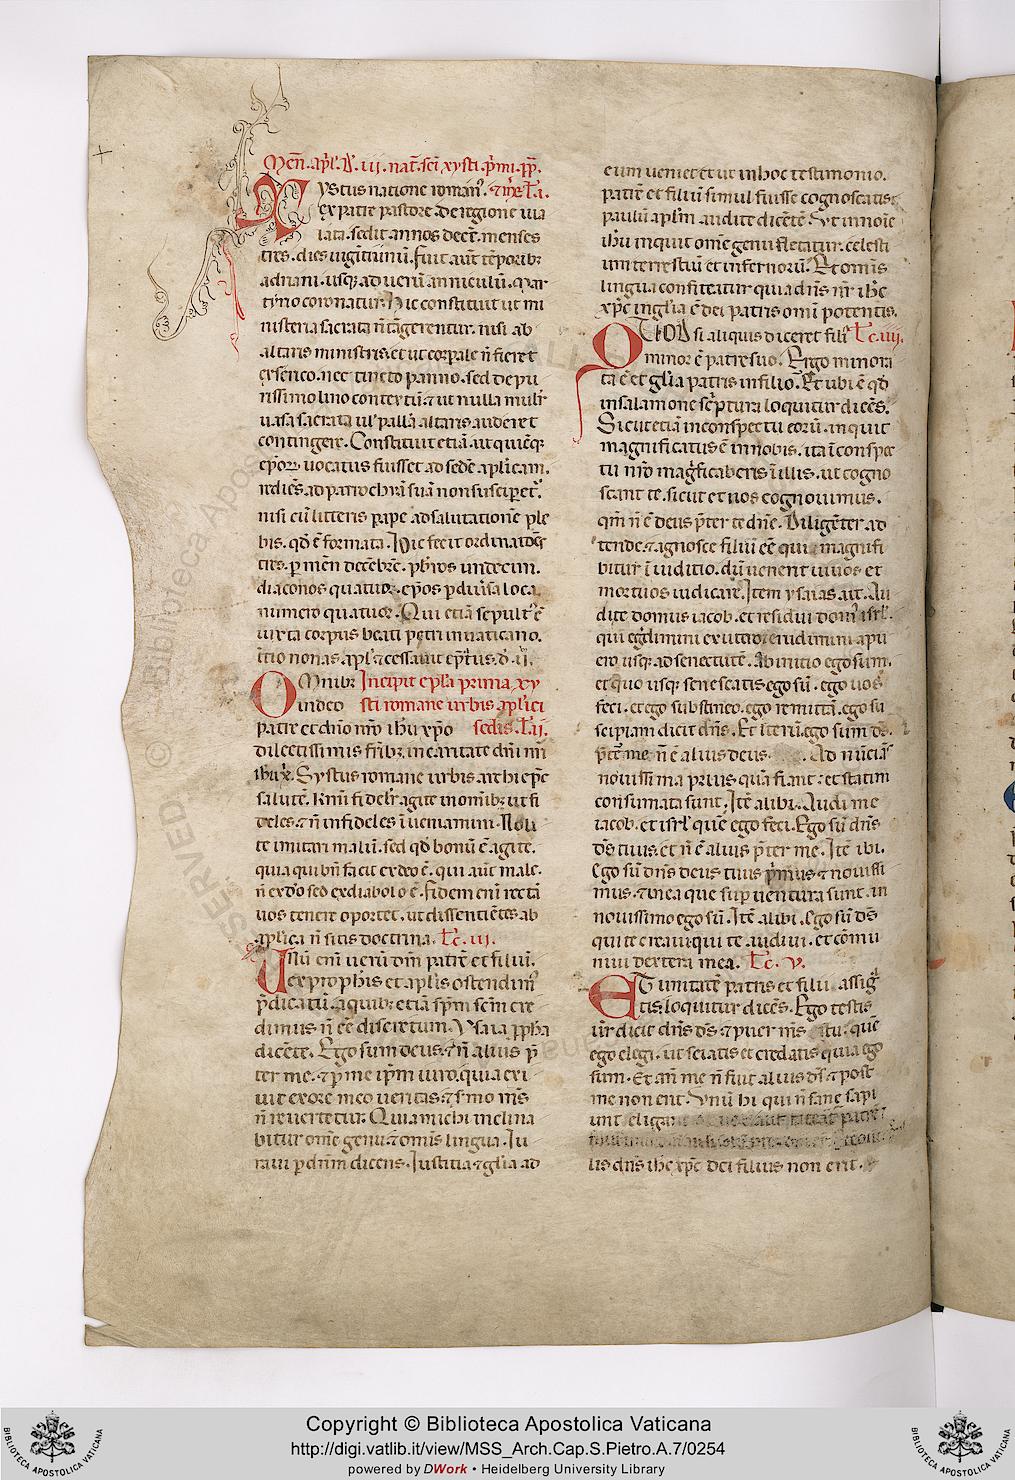 Men̄. apl̄'. D. iii. nat̄. sc̄i xysti p̄mi. pp̄.
Xystus natione roman'. mr̄. Lc̄. i.
ex patre pastore. de regione uia
lata. sedit annos decē. menses
tres. dies uiginti unū. fuit aut̄ tēporib;
adriani. usq; ad uerū anniculū.
tirio coronatur. Hic constituit ut mi
nisteria sacrata n̄ tāgerentur. nisi ab
altaris ministris. et ut corpale n̄ fieret
ex serico. nec tincto panno. sed de pu
rissimo lino contextū. ⁊ ut nulla mulr̄
uasa sacrata ul' pallā altaris auderet
contingere. Constituit etiā. ut quicūq;
ep̄or uocatus fuisset ad sedē apl̄icam.
rediēs. ad parrochiā suā non susciperet'.
nisi cū litteris pape ad salutationē ple
bis. qd̄ ē formata. Hic fecit ordinatōes
tres. p mēn decēbrē. pb̄ros undecim.
diaconos quatuor. ep̄os p diu'sa loca
numero quatuor. Qui etiā sepult' ē
iuxta corpus beati petri in uaticano.
tīio nonas. apl̄' ⁊ cessauit ep̄at'us. d. ii.
Omnib; Incipit ep̄la prima. xy
in deo sti romane urbis apl̄ici
patre et dn̄o nr̄o ih̄u xp̄o sedis. Lc̄. ii.
dilectissimis fr̄ib; in caritate dn̄i nr̄i
ih̄u x̄. Systus romane urbis archiep̄c
salutē. Km̄i fideli'r agite in om̄ib; ut fi
deles. ⁊ n̄ infideles īueniamini. Noli
te imitari malū. sed qd̄ bonū ē agite.
quia qui bn̄ facit ex deo ē. qui aut̄ male.
n̄ ex d'o sed ex diabolo ē. fidem enī rectā
uos tenere oportet. ut dissentiētes ab
apl̄ica n̄ sitis doctrina. Lc̄. iii.
Unū enī uerū dm̄ patrē et filiū.
ex pro ph̄is et apl̄is ostendim'
p̄dicatū. a quib; etiā sp̄m sc̄m cre
dimus n̄ eē discretum. Ysaia pp̄ha
dicēte. Ego sum deus. ⁊ n̄ alius p̄
ter me. ⁊ p me ip̄m iuro. quia exi
uit ex ore meo ueritas. ⁊ s'mo m̄s
n̄ reuertetur. Quia michi inclina
bitur om̄e genu. ⁊ om̄is lingua. Iu
raui p dn̄m dicens. Iustitia ⁊ gl̄ia ad
eum ueniet et ut in hoc testimonio.
patrē et filiū simul fuisse cognoscatis.
paulū apl̄m audite dicētē. Ut in noīe
ih̄u inquit om̄e genu flectatur. celesti
um terrestiū et infernorū. Et om̄is
lingua confiteatur quia dn̄s nr̄ ih̄c
xp̄c in gl̄ia ē dei patris om̄ipotentis.
QUOD si aliquis diceret fili' Lc̄. iiii.
minor ē patre suo. Ergo minora
ta ē et gl̄ia patris in filio. Et ubi ē qd̄
in salamone sc̄ptura loquitur dicēs.
Sicut etiā in conspectu eorū. inquit
magnificatus ē in nobis. ita ī conspec
tu nr̄o mag̓ficaberis ī illis. ut cogno
scant te. sicut et nos cognouimus.
qm̄ n̄ ē deus p̄ter te dn̄e. Diligēter ad
tende. ⁊ agnosce filiū eē qui magnifi
bitur ī iuditio. dū uenerit uiuos et
mortuos iudicare. Item ysaias ait. Au
dite domus iacob. et residui dom' isrl̄'.
qui eg̓dimini ex utero. erudimini a pu
ero usq; ad senectutē. Ab initio ego sum.
et quo usq; senescatis ego sū. ego uos
feci. et ego substineo. ego remittā. ego su
scipiam dicit dn̄s. Et iterū. ego sum ds̄.
p̄ter me n̄ ē alius deus. Ad nūciās
nouissima prius quā fiant: et statim
consumata sunt. Itē alibi. Audi me
iacob. et isrl̄' quē ego feci. Ego sū dn̄s
ds̄ tuus. et n̄ ē alius p̄ter me. Itē ibi.
Ego sū dn̄s deus tuus p̄mus. ⁊ nouissi
mus. ⁊ in ea que sup uentura sunt. in
nouissimo ego sū. Itē alibi. Ego sū ds̄
qui te creaui. qui te audiui. et cōmu
niui dextera mea. Lc̄. v.
ET unitatē patris et filii assig̓
tis. loquitur dicēs. Ego testis
ur̄ dicit dn̄s ds̄. ⁊ puer m̄s quē
ego elegi. ut sciatis et credatis quia ego
sum. Et an̄ me n̄ fuit alius ds̄. ⁊ post
me non erit. Unū hi qui n̄ sane sapi
unt eligant patrē
lis dn̄s ih̄c xp̄c dei filius non erit.
Copyright © Biblioteca Apostolica Vaticana
http://digi.vatlib.it/view/MSS_Arch.Cap.S.Pietro.A.7/0254
powered by DWork • Heidelberg University Library
BIBLIOTECA APOSTOLICA VATICANA
BIBLIOTECA APOSTOLICA VATICANA